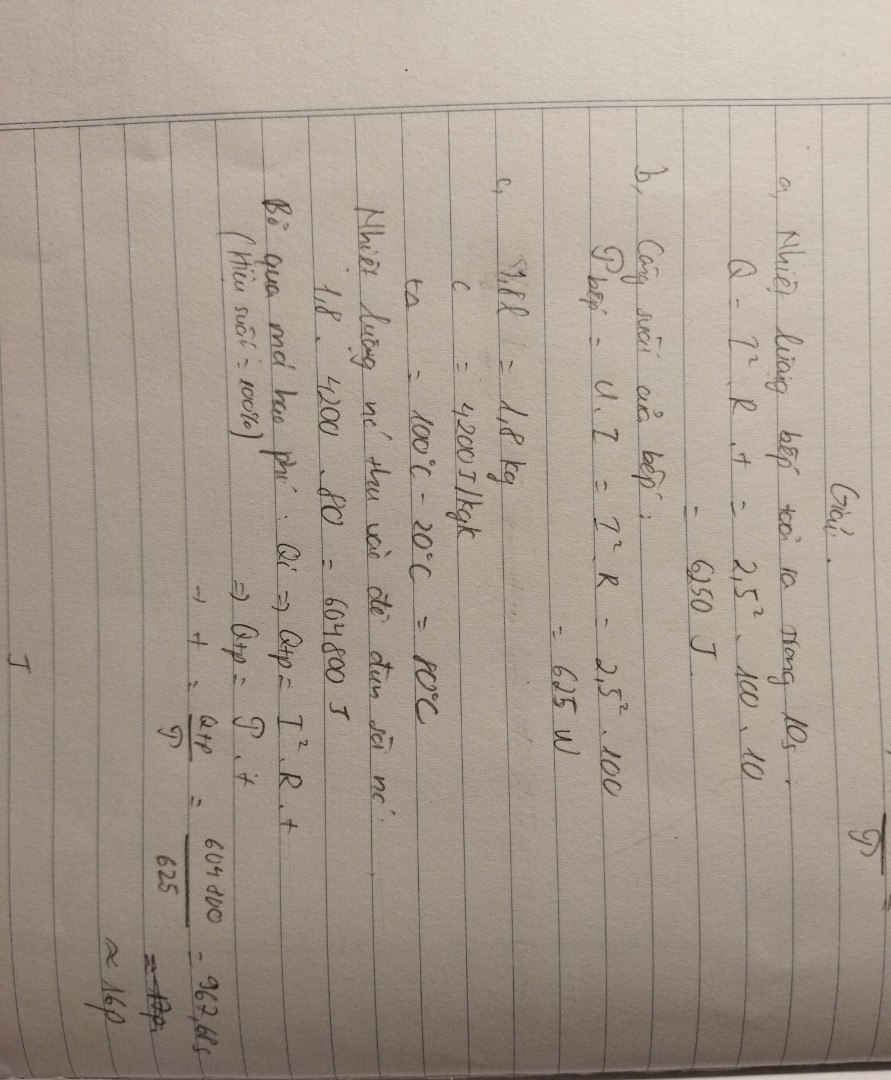 P =
Giải.
a, Nhiệt lượng bếp toả ra trong 10s :
Q = I² . R . t = 2,5² . 100 . 10
= 6250 J.
b, Công suất của bếp :
P bếp = U.I = I².R = 2,5² . 100
= 625 W
c, 1,8l = 1,8 kg
c = 4200J/kgk
tΔ = 100°C - 20°C = 80°C
Nhiệt lượng nc thu vào để đun sôi nc.
1,8 . 4200 . 80 = 604800 J
Bỏ qua mđ hao phí : Qi => Qtp = I² . R . t
(Hiệu suất = 100%) => Qtp = P . t
→ t = Qtp / P = 604800 / 625 = 967,68s
≈ 17p
≈ 16p
J